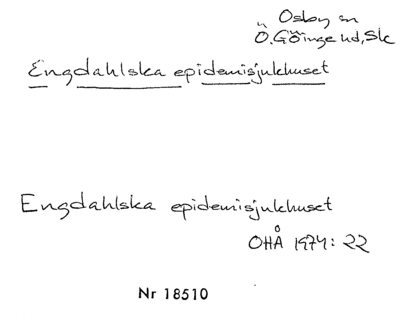 Osby sn
Ö. Göinge hd, Sk
Engdahlska epidemisjukhuset
Engdahlska epidemisjukhuset
OHÅ 1974: 22
Nr 18510